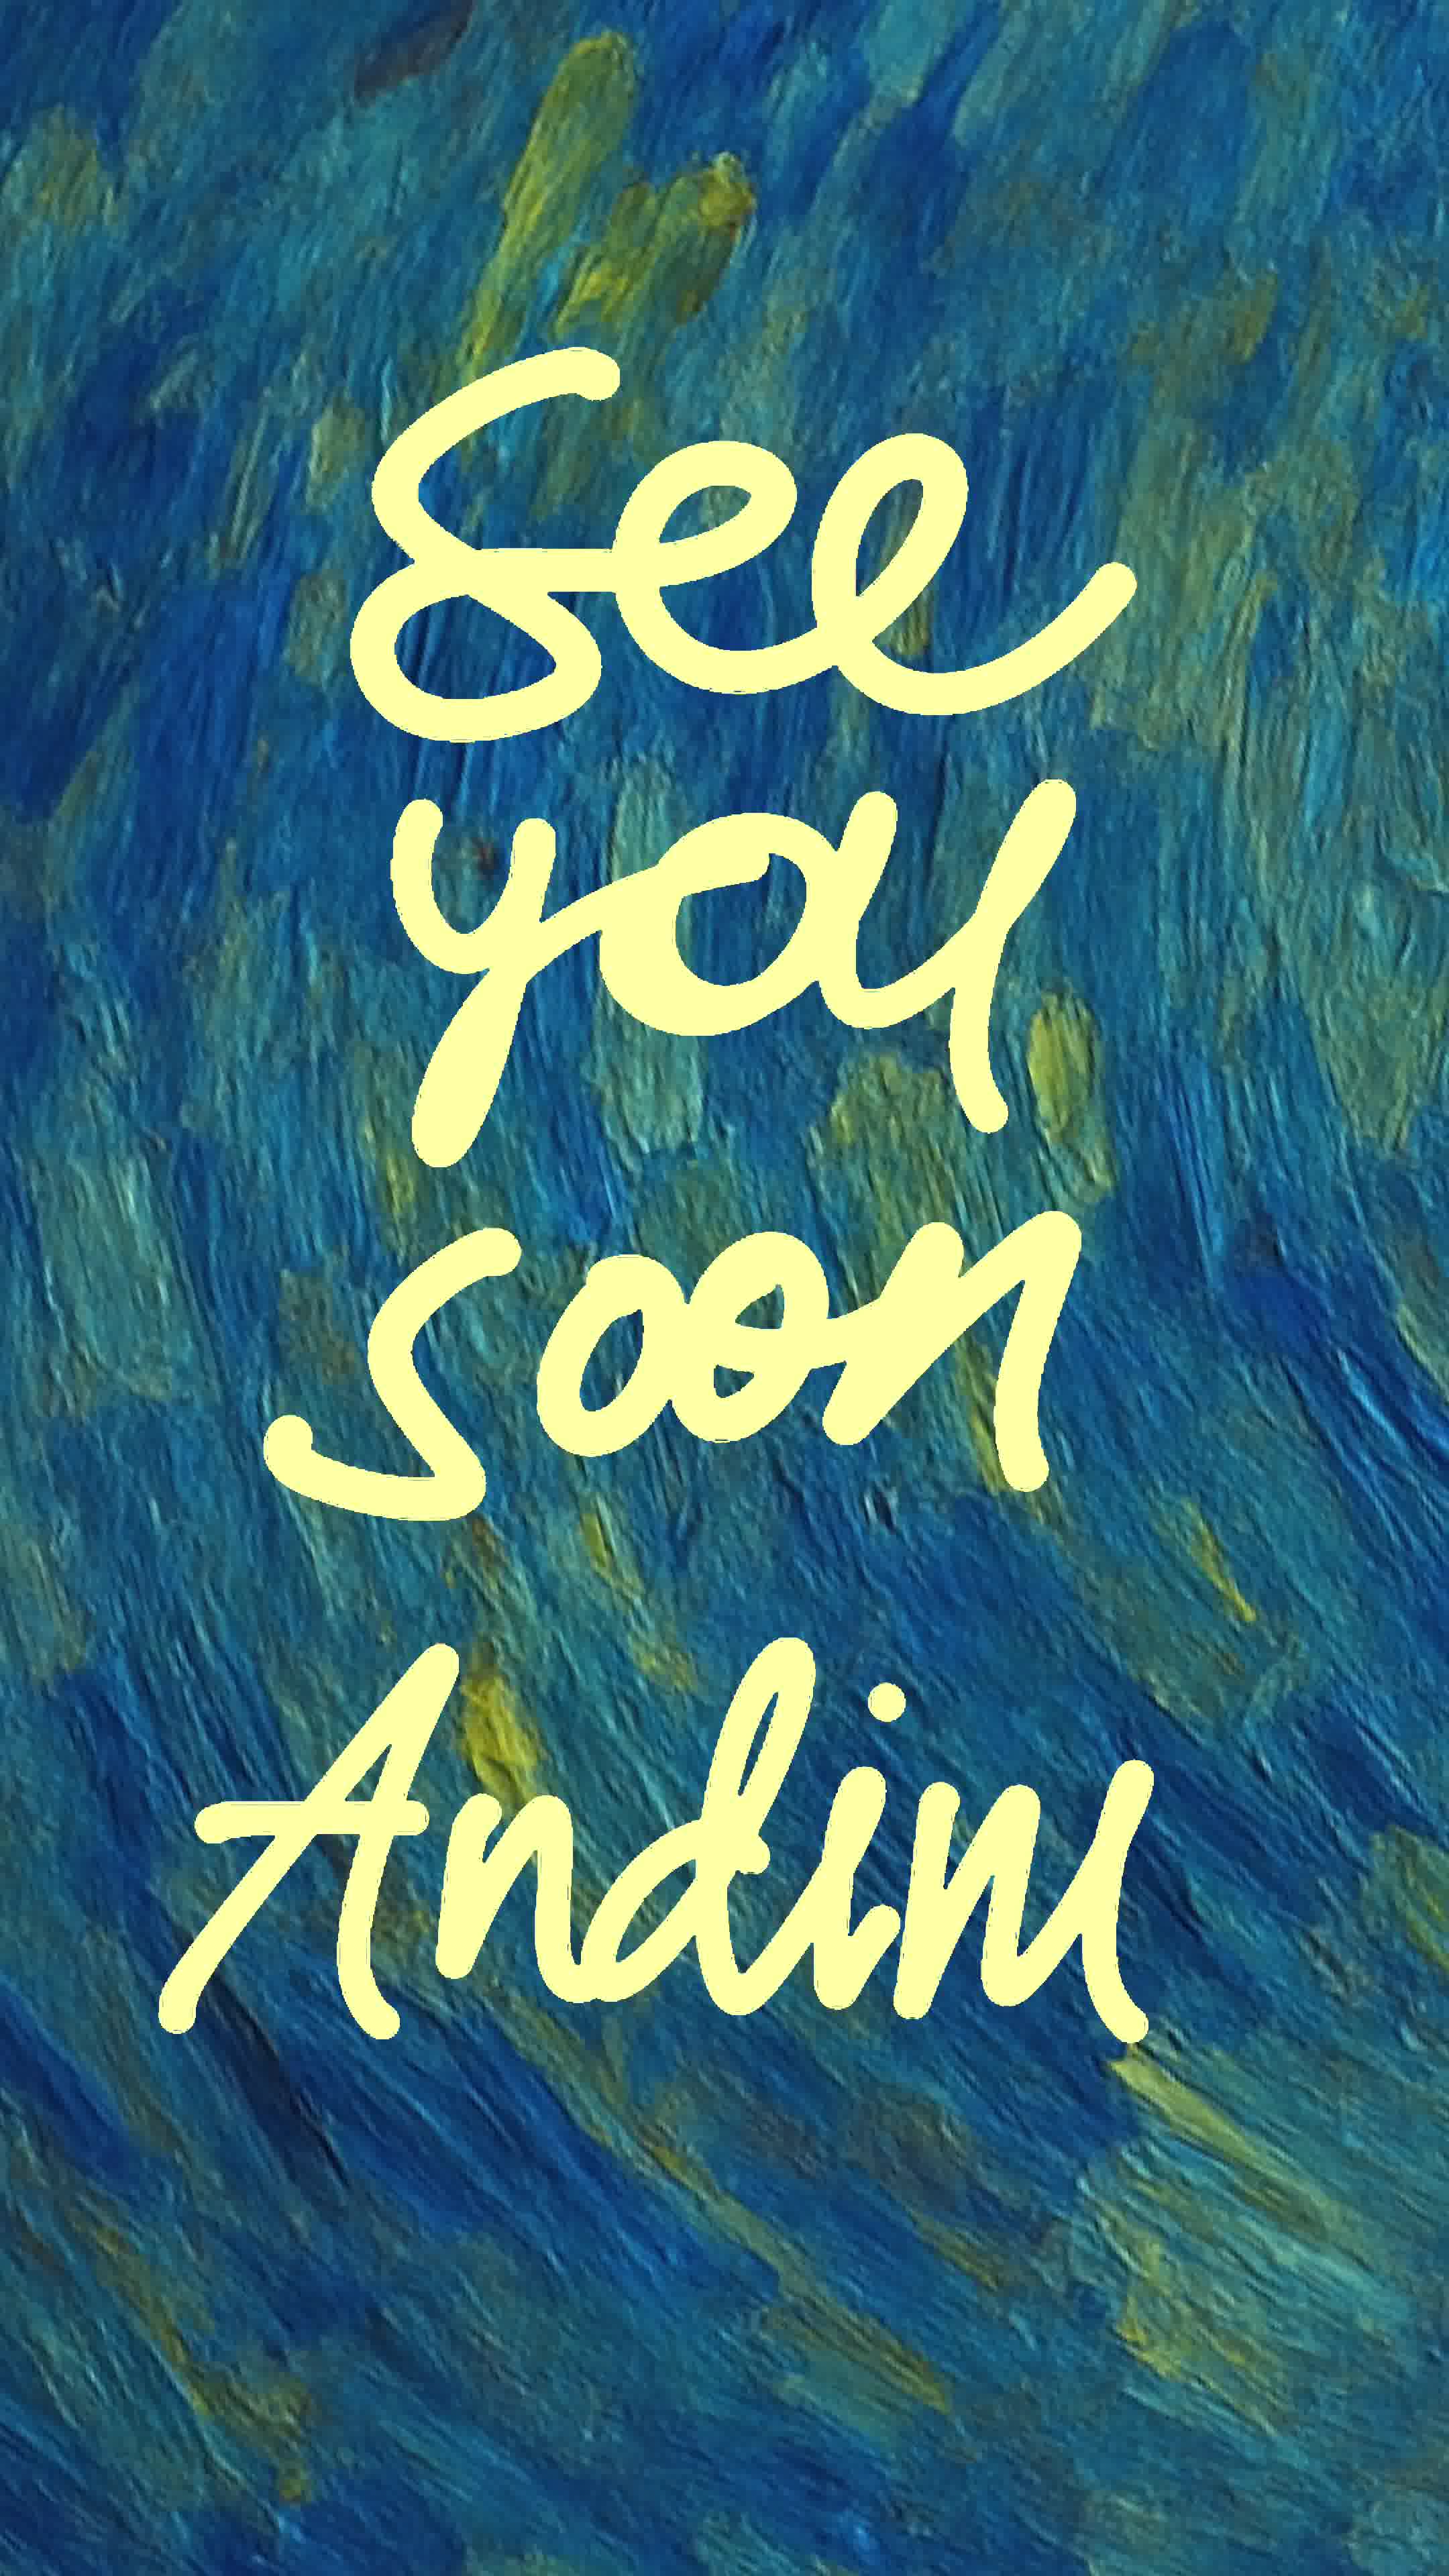 See
you
soon
Andini